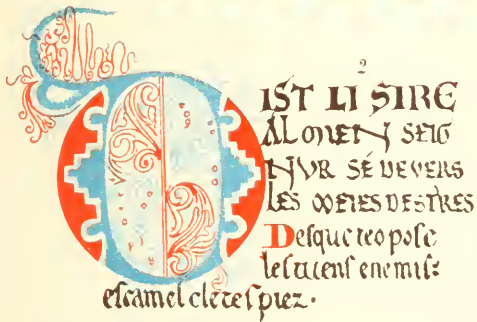 DIST LI SIRE
AL MIEN SEIG
NUR SÉ DEVERS
LES MEIES DESTRES
Desque ieo pose
les tuens enemis:
escamel de tes piez.